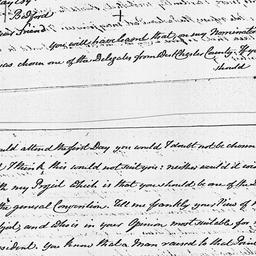 Bedford
Dear Friend
You will have learnt that, on my Nomination
was chosen one of the Delegates from West Chester County. If you
should
would attend the first Day you would I doubt not be chosen
I think this would not suit you: neither would it
with my Project which is that you should be one of the
the general Convention. Tell me frankly your View of
and who is in your Opinion most suitable for
President. You know that a Man raised to that